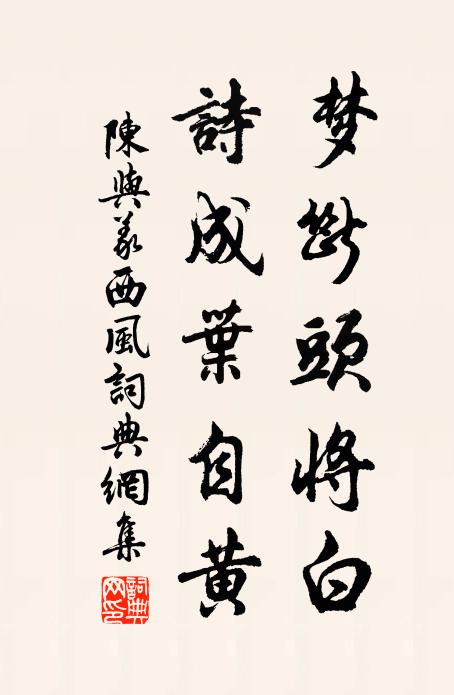 梦斷頭將白
詩成葉自黄
陳與義西風詞典網集
詞典网印